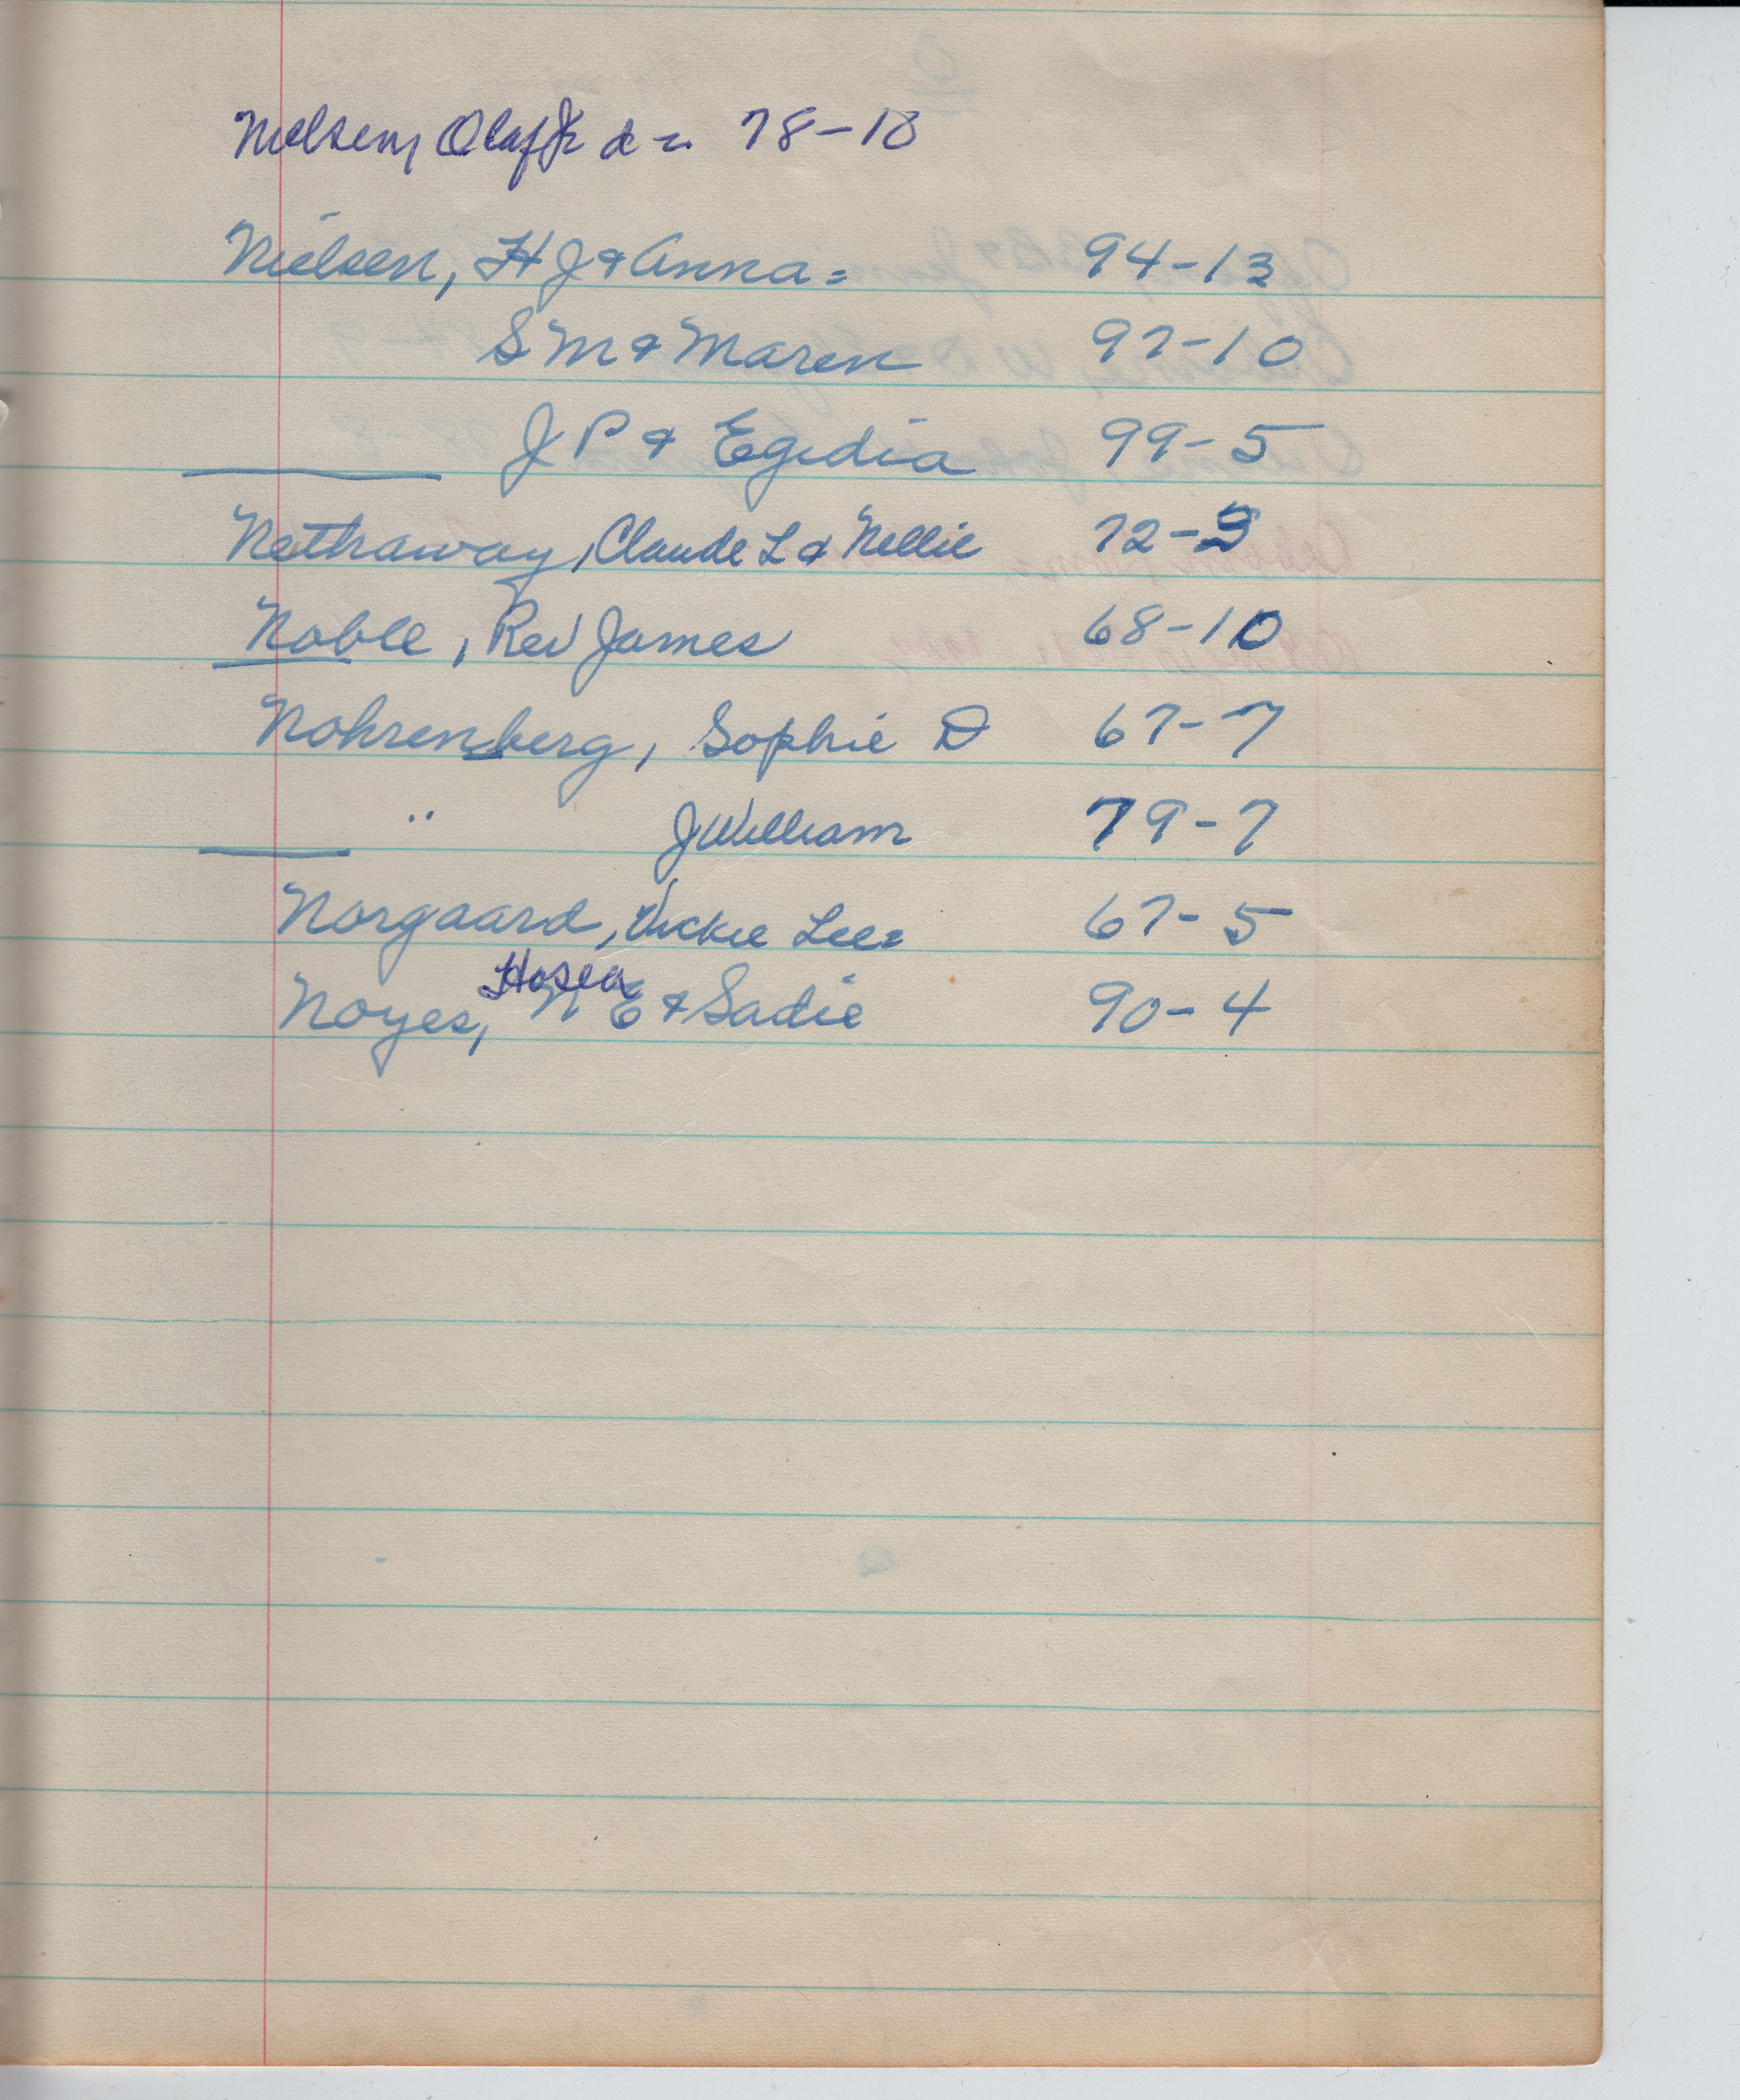 Nielsen, Olaf Jr & = 78-10
Nielsen, H J & Anna = 94-13
S M & Maren 97-10
J P & Egidia 99-5
Nethaway, Claude L & Nellie 72-
Noble, Rev James 68-10
Nohrenberg, Sophie D 67-7
" J William 79-7
Norgaard, Vickie Lee = 67-5
Hosea
Noyes, N E & Sadie 90-4